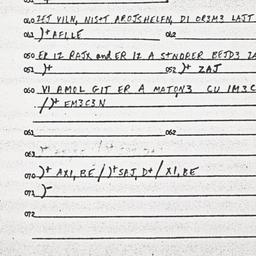 040 ZEJ VILN, NIS+T AROJSHELFN, DI OR3M3 LAJT
041 )+ AFILLE 042
050 ER IZ RAJX and ER IZ A S+NORER BEJD3 ZA
051 )+ 052 )+ ZAJ
060 VI AMOL GIT ER A MATON3 CU IM3C
/)+ EM3C3N
061 062
063
070 )+ AXI, BE / )+ SAJ, D+ / XI, BE
071 )-
072